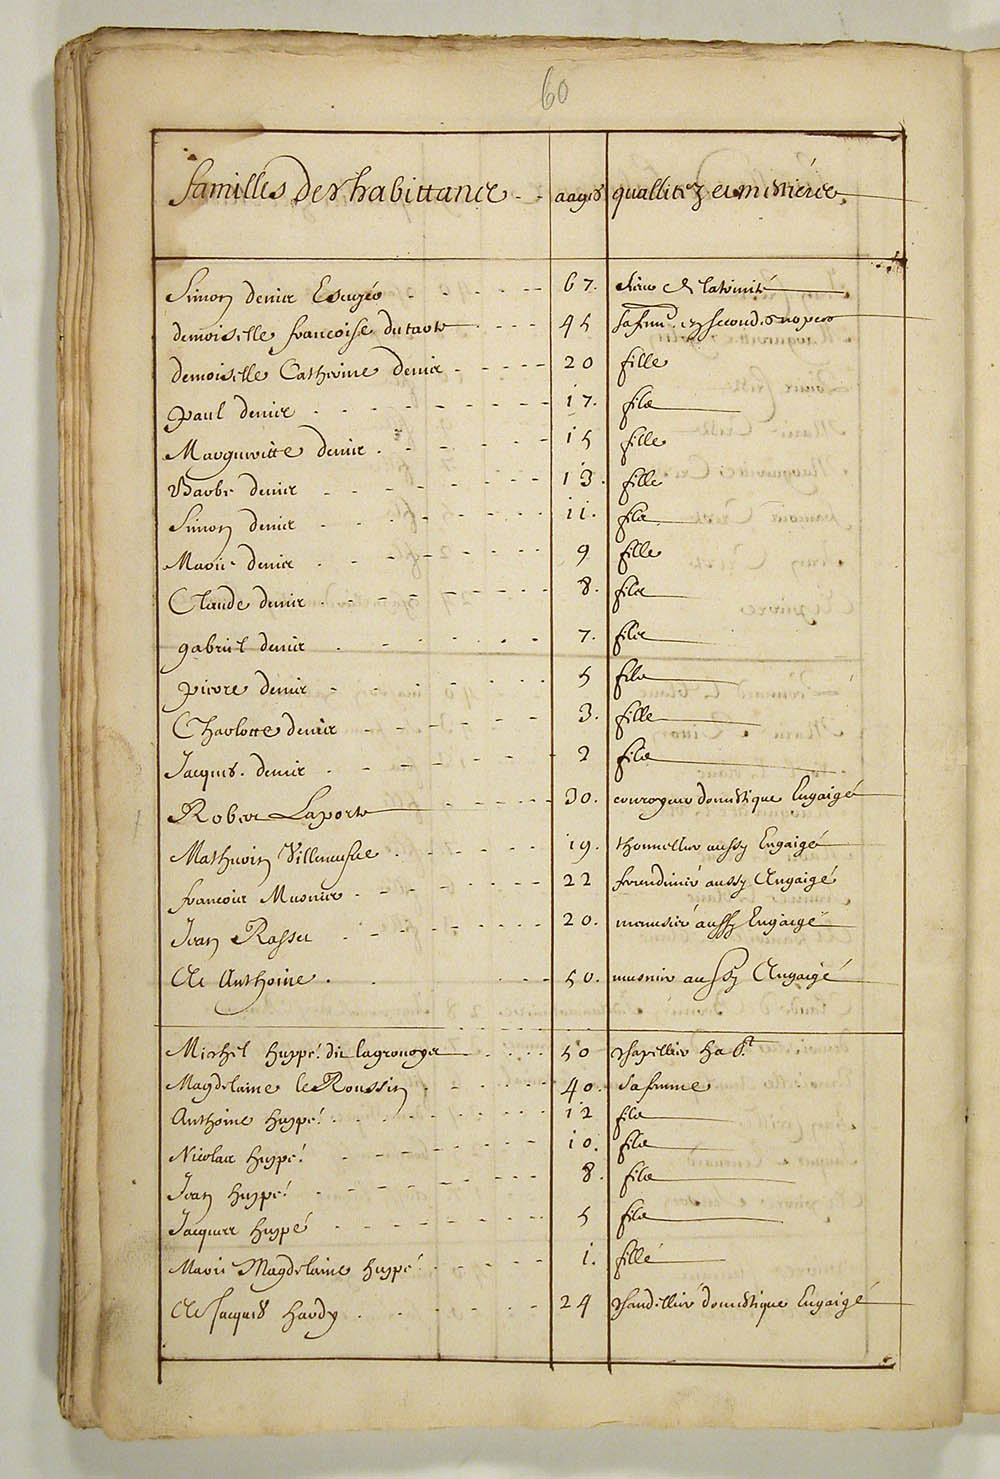 60
familles des habittans aages quallitez et mestiers
Simon denis Escuyer 67. sieur de latrinité
demoiselle francoise dutartre 45 sa femme en secondes nopces
demoiselle Catherine denis 20 fille
paul denis 17. fils
Margueritte denis 15 fille
Barbe denis 13. fille
Simon denis 11. fils
Marie denis 9 fille
Claude denis 8. fils
gabriel denis 7. fils
pierre denis 5 fils
Charlotte denis 3. fille
Jacques denis 2 fils
Robert Laporte 30. couroyeur domestique Engaigé
Mathurin Villeneufve 19. thonnellier aussy Engaigé
francois Musnier 22 aussy Engaigé
Jean Rasset 20. menusier aussy Engaigé
Et Anthoine 50. musnier aussy Engaigé
Michel huppé dit lagrouoys 50 chapellier habt.
Magdelaine le Roussin 40. sa femme
Anthoine huppé 12 fils
Nicolas huppé 10. fils
Jean huppé 8. fils
Jacques huppé 5 fils
Marie Magdelaine huppé 1. fille
Et Jacques hardy 24 chandellier domestique Engaigé